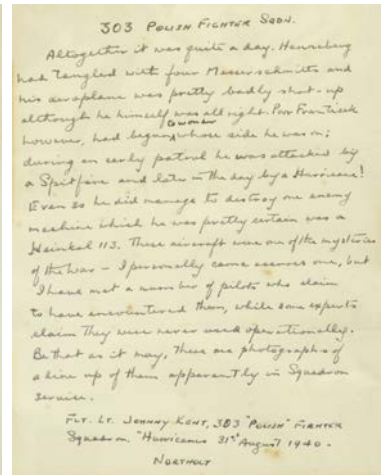 303 POLISH FIGHTER SQDN.
Altogether it was quite a day. Henneberg
had tangled with four Messerschmitts and
his aeroplane was pretty badly shot-up
although he himself was all right. Poor Frantisek
however, had began to wonder whose side he was on;
during an early patrol he was attacked by
a Spitfire and later in the day by a Hurricane!
Even so he did manage to destroy one enemy
machine which he was pretty certain was a
Heinkel 113. These aircraft were one of the mysteries
of the war – I personally came across one, but
I have met a number of pilots who claim
to have encountered them, while some experts
claim they were never used operationally.
Be that as it may, there are photographs of
a line up of them apparently in Squadron
service.
FLT. LT. JOHNNY KENT, 303 "POLISH" FIGHTER
Squadron, "Hurricanes" 31st August 1940.
NORTHOLT